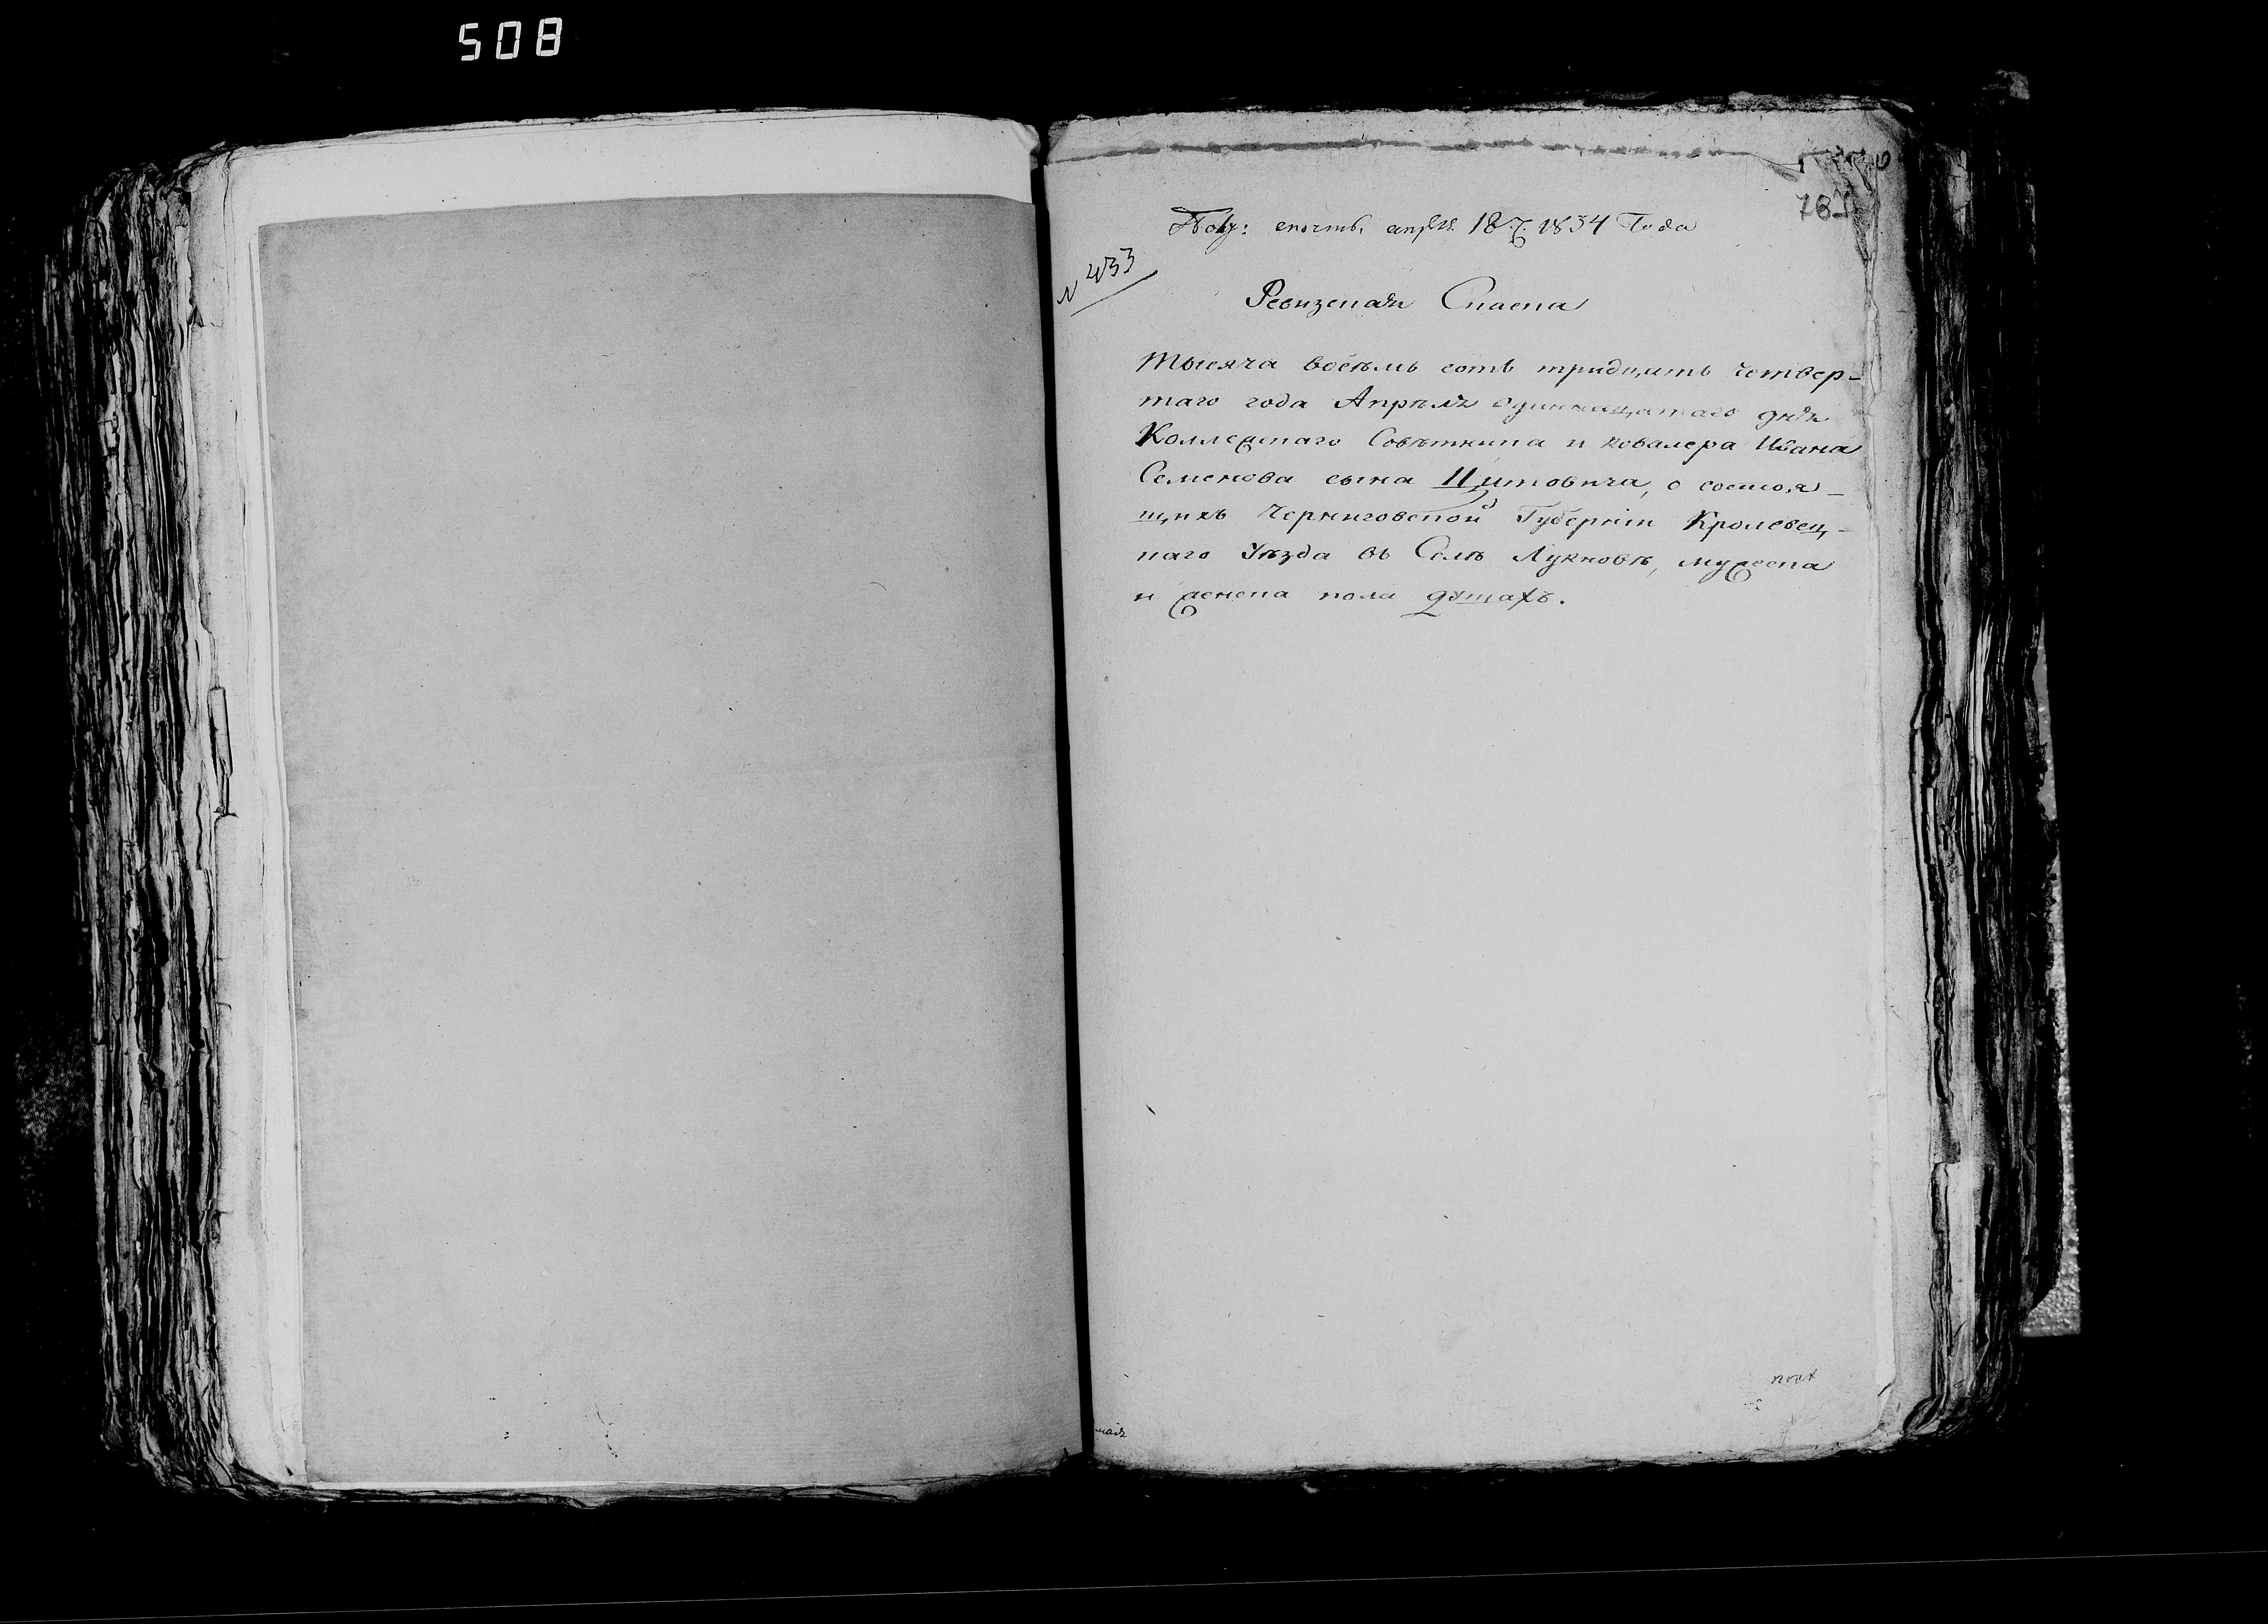 508
787
Полу: с почты апреля 18 д. 1834 Года
N 433
Ревизская Скаска
Тысяча восемь сотъ тридцать четвер-
таго года Апрѣля одиннацатаго дня
Коллежскаго Совѣтника и ковалера Ивана
Семенова сына Цитовича, о состоя-
щихъ Черниговской Губерніи Кролевец-
каго Уѣзда въ Селѣ Лукновѣ, мужеска
и женска пола душахъ.